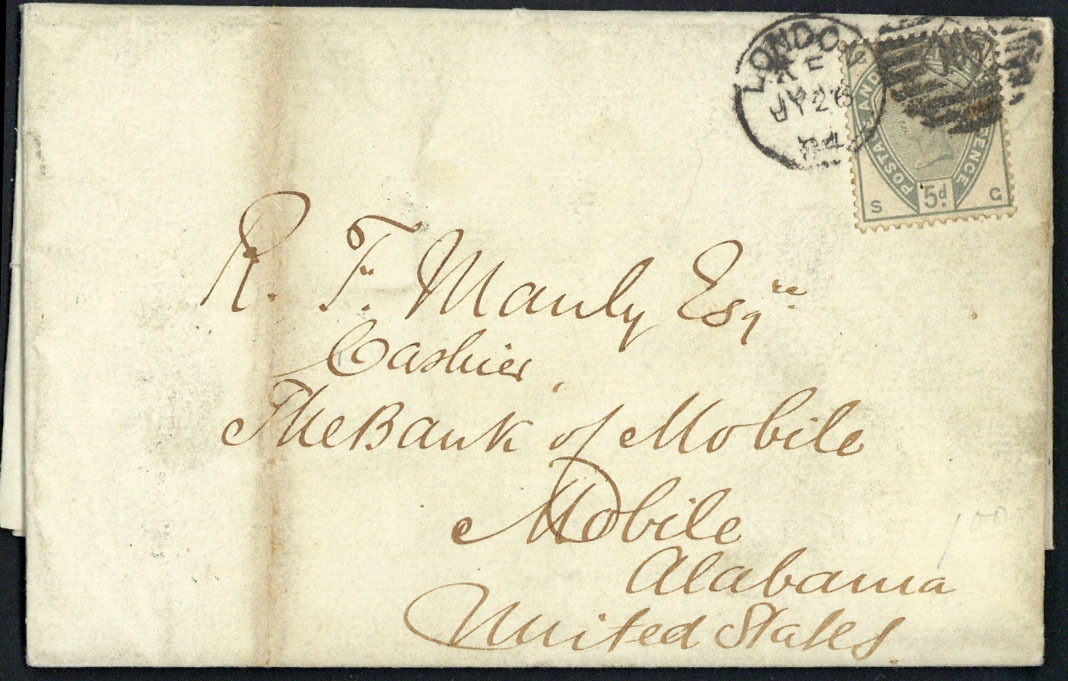 LONDON
JY 26
84
POSTAGE AND
PENCE
S 5d G
R. F. Manly Esqre
Cashier,
The Bank of Mobile
Mobile
Alabama
United States
100